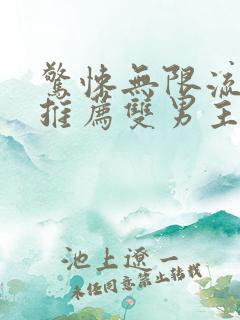 驚悚無限流
推薦雙男主
池上遼一
未經同意禁止轉載